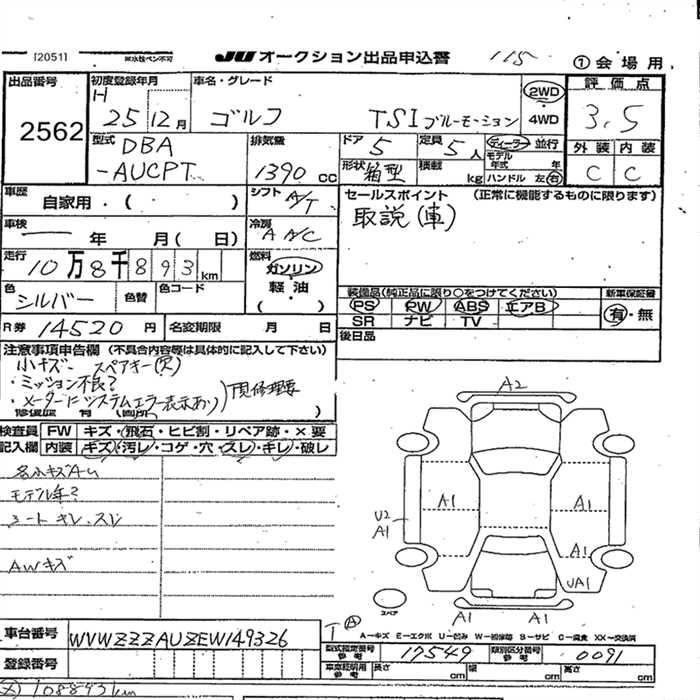 [2051] ※水性ペン不可 JU オークション出品申込書 115 ①会場用
出品番号 2562
初度登録年月 H 25 12月
車名・グレード ゴルフ TSI ブルーモーション
2WD 4WD
評価点 3.5
外装 C 内装 C
型式 DBA-AUCPT
排気量 1390 CC
ドア 5 定員 5人
形状 箱型 積載 kg
ディーラー 並行
モデル年式 年
ハンドル 左 右
車歴 自家用・( )
シフト A/T
セールスポイント (正常に機能するものに限ります)
取説(車)
車検 年 月( 日)
冷房 A A/C
走行 10万8千893km
燃料 ガソリン 軽・油 ( )
色 シルバー 色替 色コード
装備品(純正品に限り○をつけてください) 新車保証書
PS PW ABS エアB 有・無
SR ナビ TV
R券 14520円 名変期限 月 日
後日品
注意事項申告欄 (不具合内容等は具体的に記入して下さい)
小キズ スペアキー(欠)
・ミッション不良?
・メーターにシステムエラー表示あり
)
修復歴 有 (箇所 )
検査員記入欄
FW キズ・飛石・ヒビ割・リペア跡・×要
内装 キズ・汚レ・コゲ・穴・スレ・キレ・破レ
各小キズAU
モデル年?
シートキレ、スレ
AWキズ
A2
A1 A1
U2 A1
A1
UA1
A1 A1
スペア
A
A－キズ E－エクボ U－凹み W－補修跡 S－サビ C－腐食 XX－交換済
車台番号 WVWZZZAUZEW149326
型式指定番号 参考 17549 類別区分番号 参考 0091
登録番号
車庫証明用 参考 長さ cm 幅 cm 高さ cm
108893km